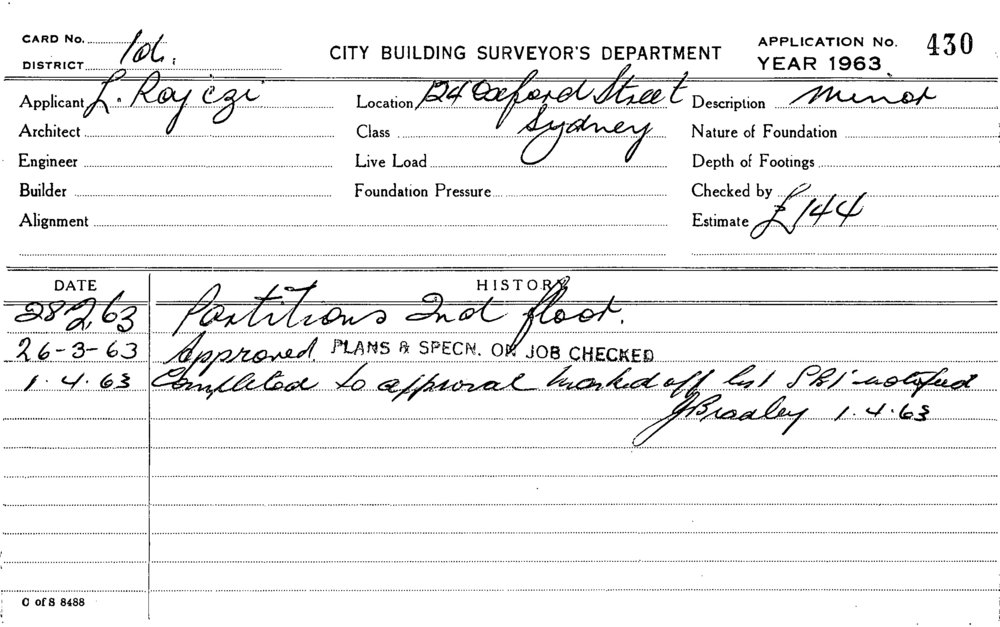 CARD No. 1d.
DISTRICT
CITY BUILDING SURVEYOR'S DEPARTMENT
APPLICATION No. 430
YEAR 1963
Applicant L. Rajczi
Location 124 Oxford Street
Description Minor
Architect
Class Sydney
Nature of Foundation
Engineer
Live Load
Depth of Footings
Builder
Foundation Pressure
Checked by
Alignment
Estimate £144
DATE HISTORY
28 2.63 Partitions 2nd floor.
26-3-63 Approved PLANS & SPECN. ON JOB CHECKED
1.4.63 Completed to approval marked off list notified
JBradley 1.4.63
C of S 8488